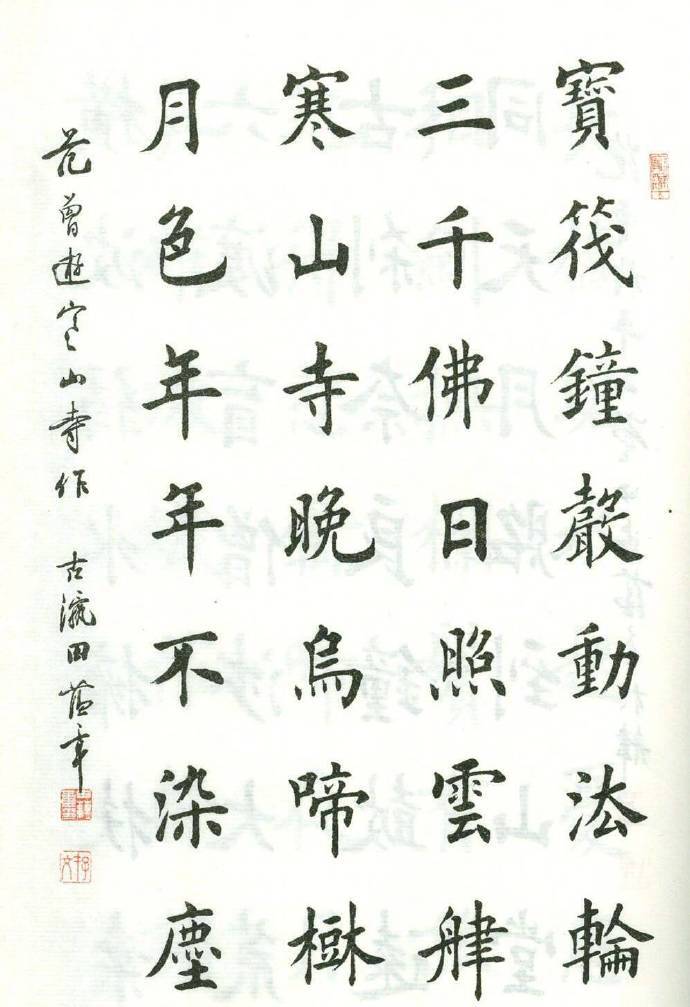 寶筏鐘聲動法輪
三千佛日照雲津
寒山寺晚烏啼樹
月色年年不染塵
范曾遊寒山寺作 古瀛田蕴章